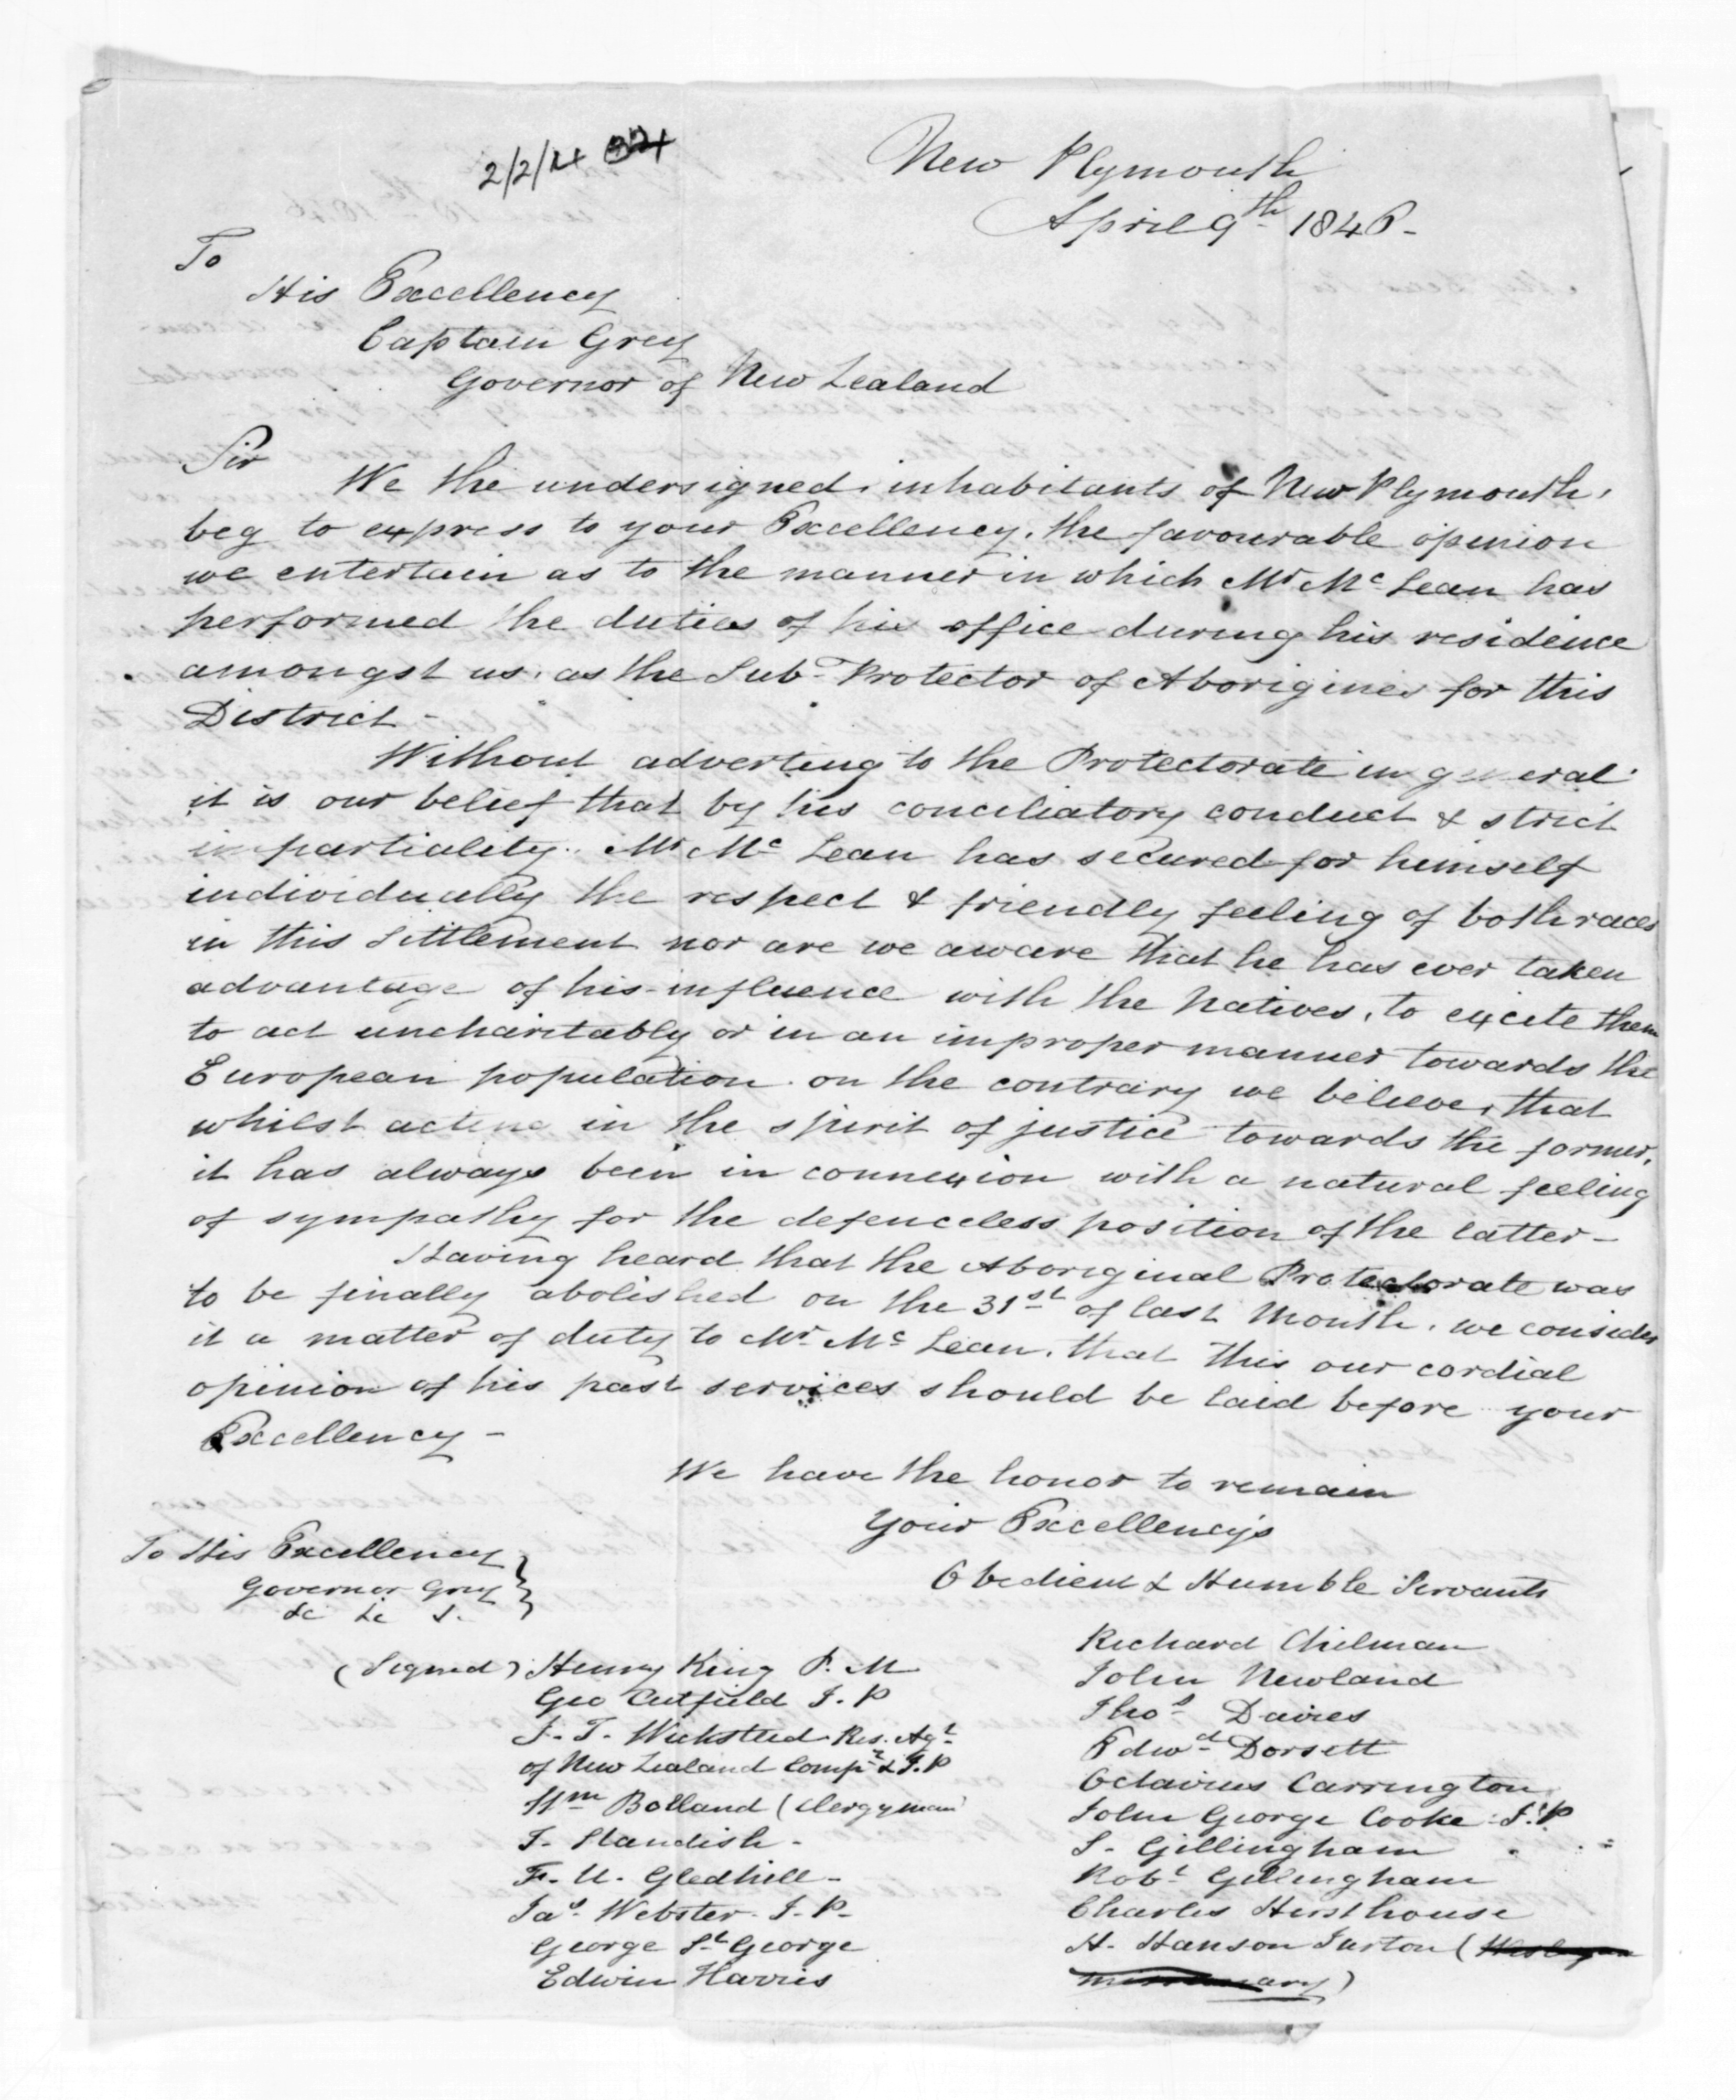 2/2/24
New Plymouth
April 9th 1846-
To
His Excellency
Captain Grey
Governor of New Zealand
Sir
We the undersigned, inhabitants of New Plymouth,
beg to express to your Excellency, the favourable opinion
we entertain as to the manner in which Mr McLean has
performed the duties of his office during his residence
amongst us, as the Sub-Protector of Aborigines for this
District-
Without adverting to the Protectorate in general
it is our belief that by his conciliatory conduct & strict
impartiality, Mr McLean has secured for himself
individually the respect & friendly feeling of both races
in this Settlement nor are we aware that he has ever taken
advantage of his influence with the Natives, to excite them
to act uncharitably or in an improper manner towards the
European population. on the contrary we believe, that
whilst acting in the spirit of justice towards the former,
it has always been in connexion with a natural feeling
of sympathy for the defenceless position of the latter-
Having heard that the Aboriginal Protectorate was
to be finally abolished on the 31st of last Month, we consider
it a matter of duty to Mr McLean, that this our cordial
opinion of his past services should be laid before your
Excellency-
We have the honor to remain
Your Excellency's
Obedient & Humble Servants
To His Excellency
Governor Grey
&c &c &.
(Signed) Henry King P. M
Geo Cutfield J. P
J. T. Wicksteed Res. Agt
of New Zealand Compy & J. P
Wm Bolland (Clergyman
T. Standish-
F. U. Gledhill-
Jas Webster. J. P-
George St George
Edwin Harris
Richard Chilman
John Newland
Thos Davies
Edwd Dorsett
Octavius Carrington
John George Cooke. J. P
S. Gillingham
Robt Gillingham
Charles Hursthouse
H. Hanson Turton (Wesleyan
missionary)